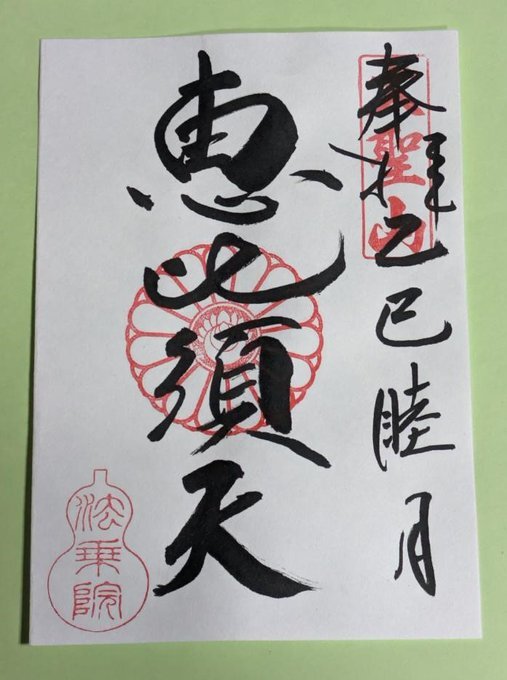 奉拝 乙巳睦月
聖山
恵比須天
法乗院